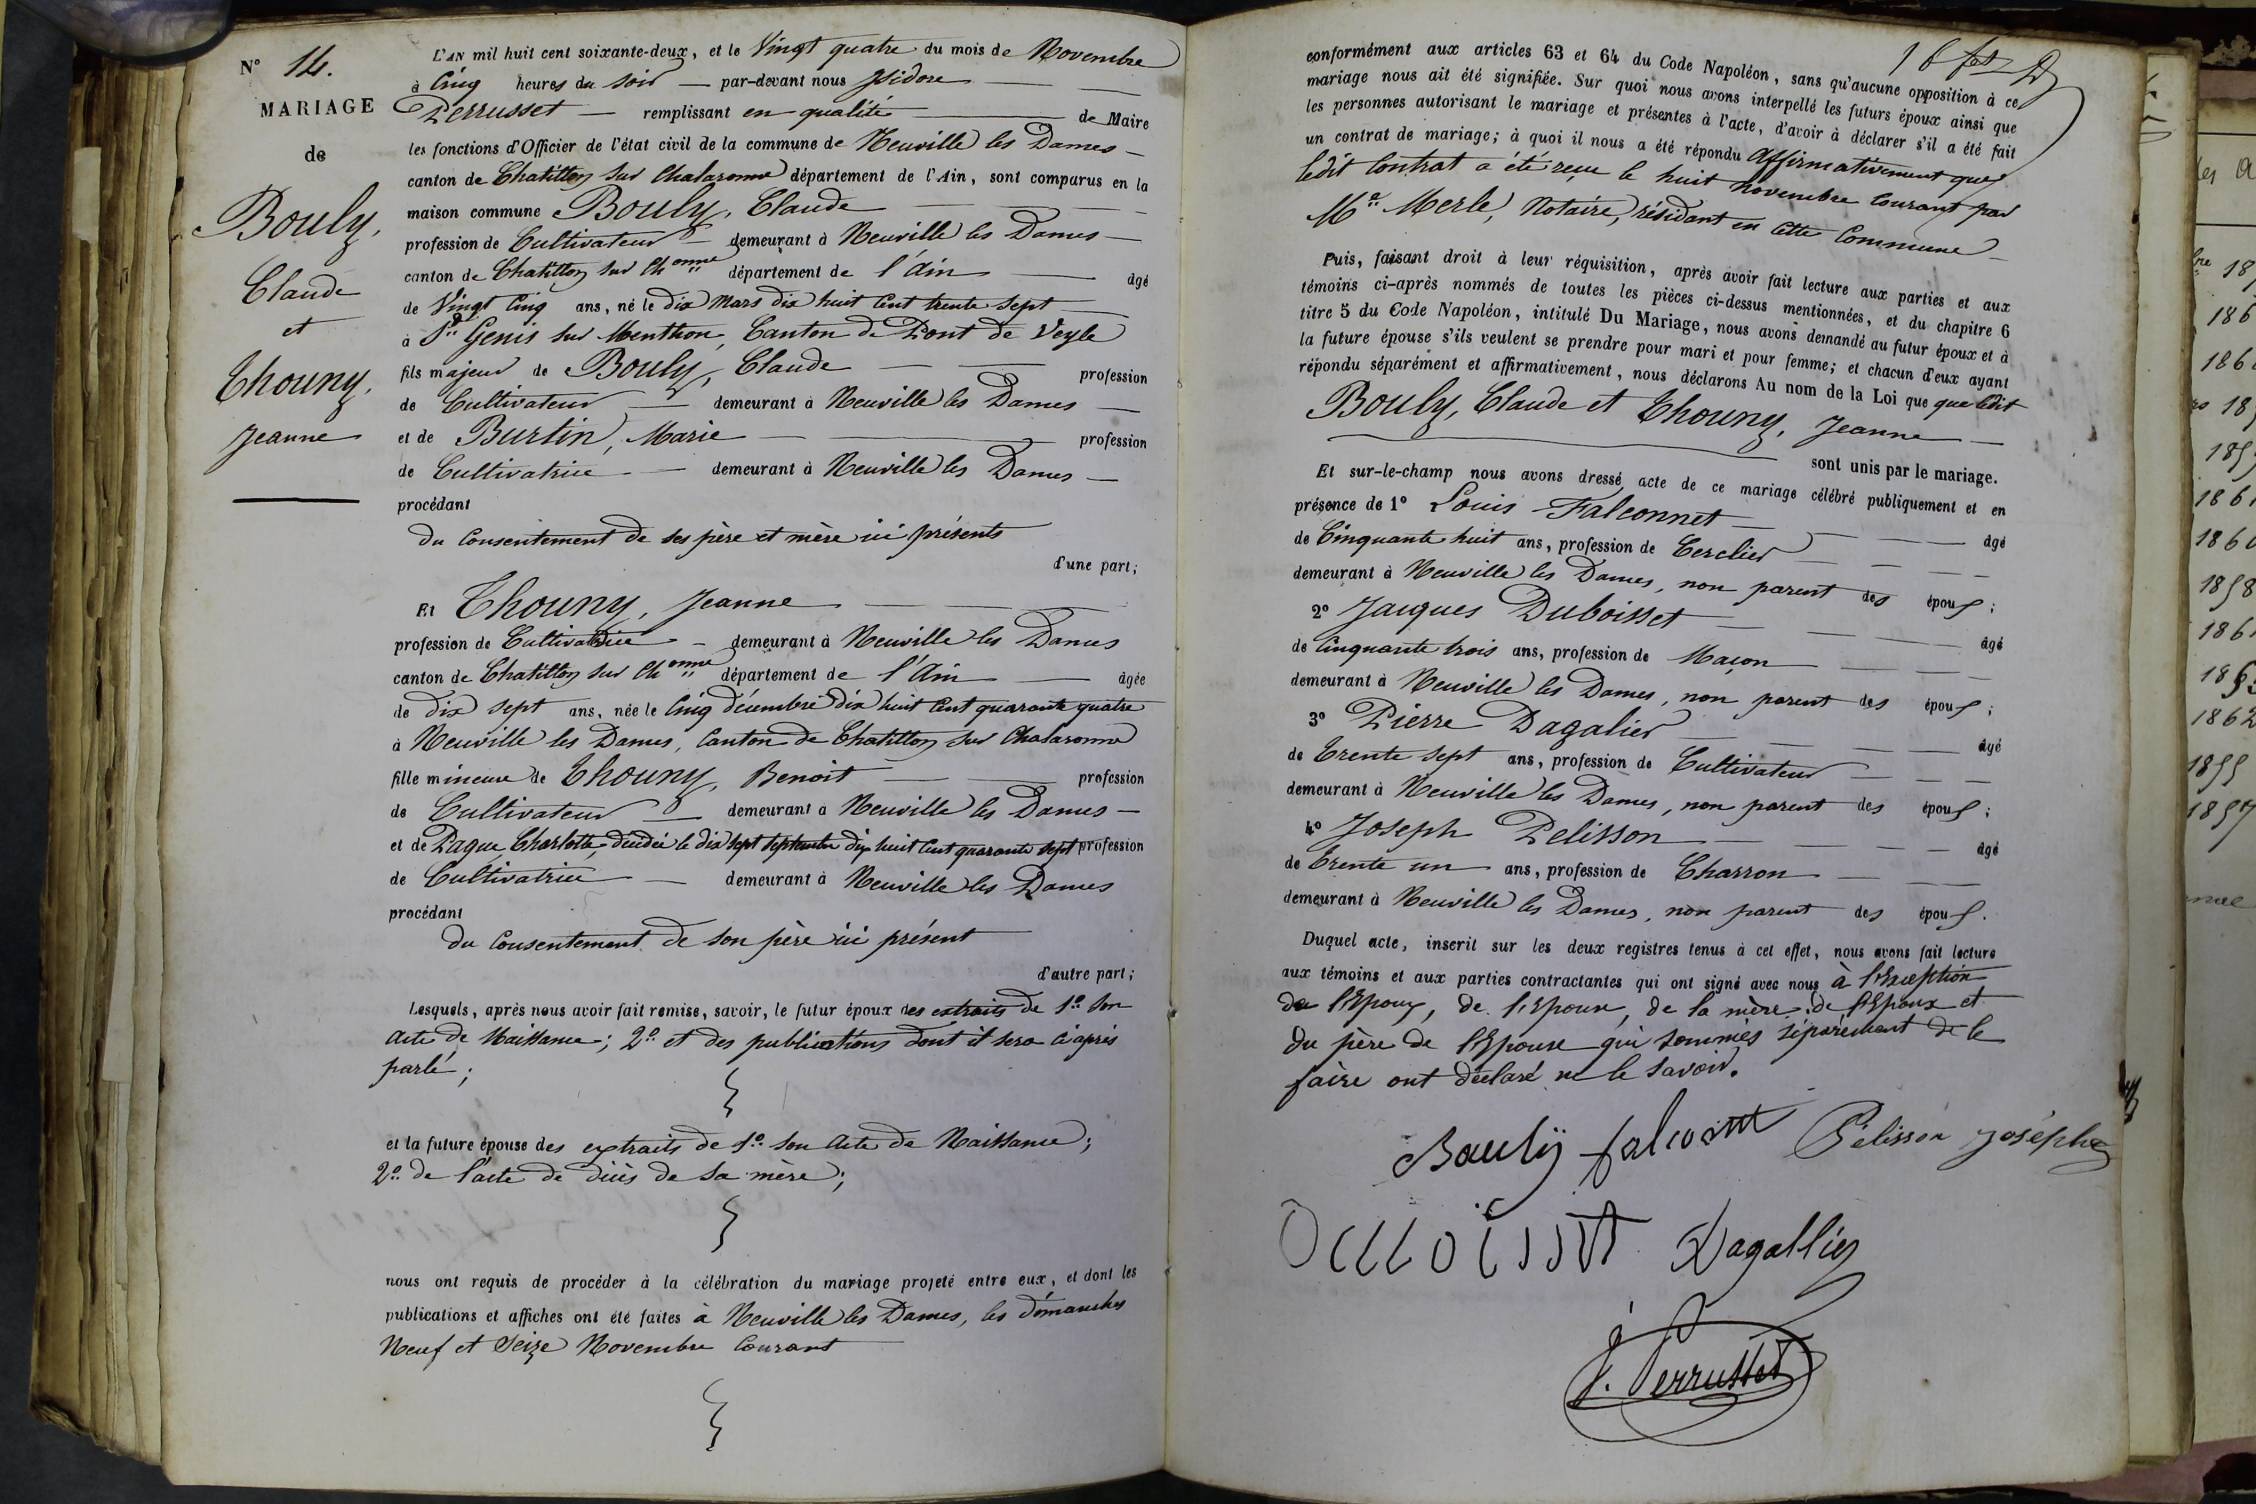 N° 14.
MARIAGE
de
Bouly,
Claude
et
Thouny,
Jeanne
L'AN mil huit cent soixante-deux, et le Vingt quatre du mois de Novembre
à Cinq heures du soir — par-devant nous Isidore
Perrusset — remplissant en qualité de Maire
les fonctions d'Officier de l'état civil de la commune de Neuville les Dames
canton de Chatillon sur Chalaronne département de l'Ain, sont comparus en la
maison commune Bouly, Claude
profession de Cultivateur demeurant à Neuville les Dames
canton de Chatillon sur Chonne département de l'Ain âgé
de Vingt Cinq ans, né le dix Mars dix huit Cent trente sept
à St Genis sur Menthon, Canton de Pont de Veyle
fils majeur de Bouly, Claude profession
de Cultivateur demeurant à Neuville les Dames
et de Burtin, Marie profession
de Cultivatrice demeurant à Neuville les Dames
procédant
du Consentement de ses père et mère ici présents
d'une part;
Et Thouny, Jeanne
profession de Cultivatrice demeurant à Neuville les Dames
canton de Chatillon sur Chonne département de l'Ain âgée
de dix sept ans, née le Cinq décembre dix huit Cent quarante quatre
à Neuville les Dames, Canton de Chatillon sur Chalaronne
fille mineure de Thouny, Benoit profession
de Cultivateur demeurant à Neuville les Dames
et de Pague Charlotte, décédée le dix sept septembre dix huit Cent quarante sept profession
de Cultivatrice demeurant à Neuville les Dames
procédant
du Consentement de son père ici présent
d'autre part;
Lesquels, après nous avoir fait remise, savoir, le futur époux des extraits de 1° son
acte de Naissance; 2° et des publications dont il sera ci après
parlé;
et la future épouse des extraits de 1° son Acte de Naissance;
2° de l'acte de décès de sa mère;
nous ont requis de procéder à la célébration du mariage projeté entre eux, et dont les
publications et affiches ont été faites à Neuville les Dames, les dimanches
Neuf et Seize Novembre Courant
conformément aux articles 63 et 64 du Code Napoléon, sans qu'aucune opposition à ce
mariage nous ait été signifiée. Sur quoi nous avons interpellé les futurs époux ainsi que
les personnes autorisant le mariage et présentes à l'acte, d'avoir à déclarer s'il a été fait
un contrat de mariage; à quoi il nous a été répondu Affirmativement que
ledit Contrat a été reçu le huit novembre Courant par
Me Merle, Notaire, résidant en cette Commune
Puis, faisant droit à leur réquisition, après avoir fait lecture aux parties et aux
témoins ci-après nommés de toutes les pièces ci-dessus mentionnées, et du chapitre 6
titre 5 du Code Napoléon, intitulé Du Mariage, nous avons demandé au futur époux et à
la future épouse s'ils veulent se prendre pour mari et pour femme; et chacun d'eux ayant
répondu séparément et affirmativement, nous déclarons Au nom de la Loi que que ledit
Bouly, Claude et Thouny, Jeanne
sont unis par le mariage.
Et sur-le-champ nous avons dressé acte de ce mariage célébré publiquement et en
présence de 1° Louis Falconnet
de Cinquante huit ans, profession de Cerclier âgé
demeurant à Neuville les Dames, non parent des épous;
2° Jacques Duboisset
de Cinquante trois ans, profession de Maçon âgé
demeurant à Neuville les Dames, non parent des épous;
3° Pierre Dagalier
de Trente sept ans, profession de Cultivateur âgé
demeurant à Neuville les Dames, non parent des épous;
4° Joseph Pelisson
de Trente un ans, profession de Charron âgé
demeurant à Neuville les Dames, non parent des épous.
Duquel acte, inscrit sur les deux registres tenus à cet effet, nous avons fait lecture
aux témoins et aux parties contractantes qui ont signé avec nous à l'Exception
de l'Epoux, de l'Epouse, de la mère de l'Epoux et
du père de l'Epouse qui sommés séparément de le
faire ont déclaré ne le savoir.
Bouly falconnet Pélisson Joseph
Dagallier
J. Perrusset
186
1862
1855
1857